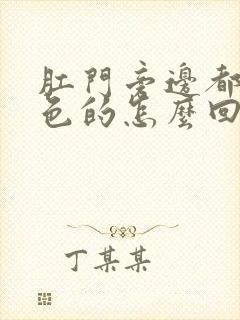 肛門旁邊都
色的怎麼回
丁某某